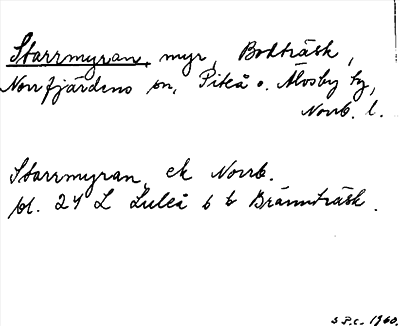 Starrmyran, myr, Bodträsk,
Norrfjärdens sn, Piteå o. Älvsby tg,
Norrb. l.
Starrmyran, ek Norrb.
bl. 24 L Luleå 6 b Brännträsk.
S.P.C. 1960.